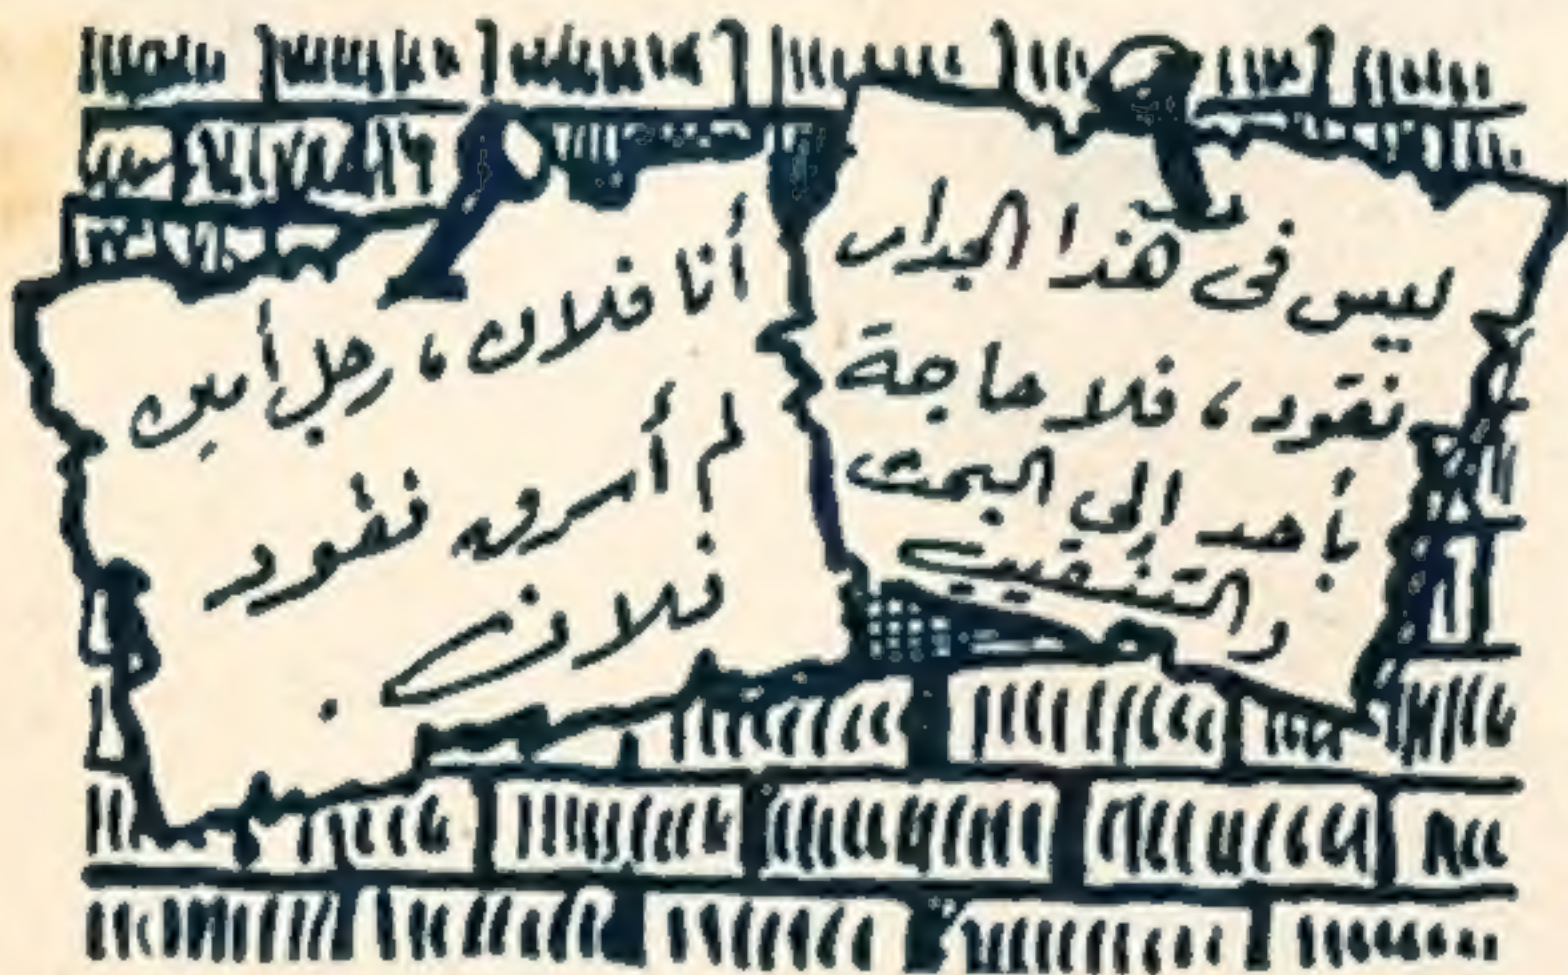 ليس فى هذا الجدار
نقود، فلا حاجة
بأحد إلى البحث
والتنقيب
أنا فلان، رجل أمين
لم أسرق نقود
فلان.